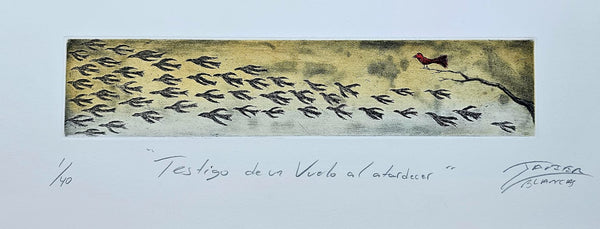 1/40 "Testigo de un Vuelo al atardecer"
BLANCAS